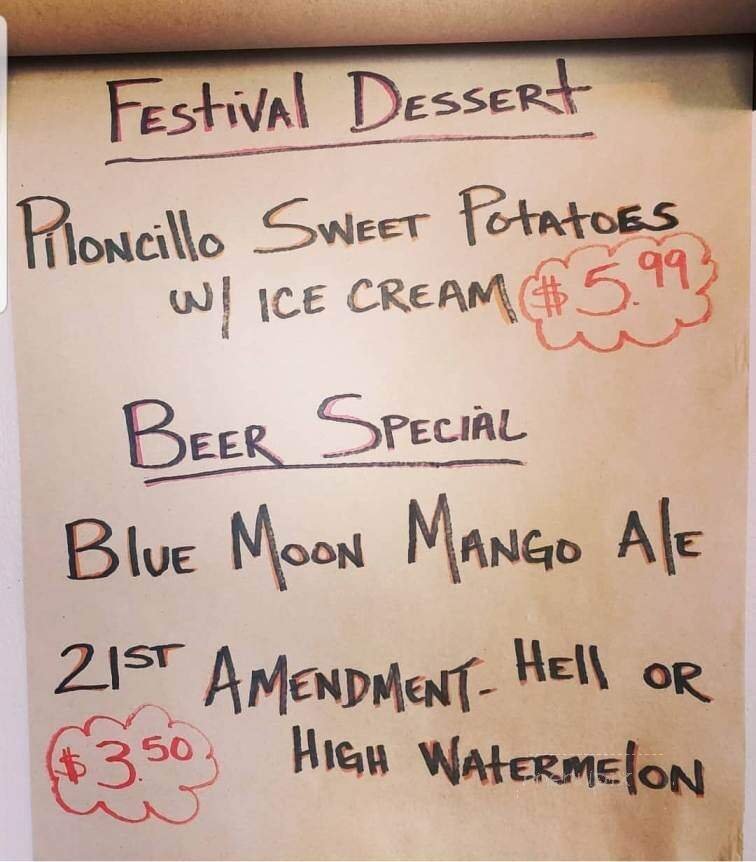 Festival Dessert
Piloncillo Sweet Potatoes
w/ ice cream $5.99
Beer Special
Blue Moon Mango Ale
21st Amendment- Hell or
$3.50 High Watermelon